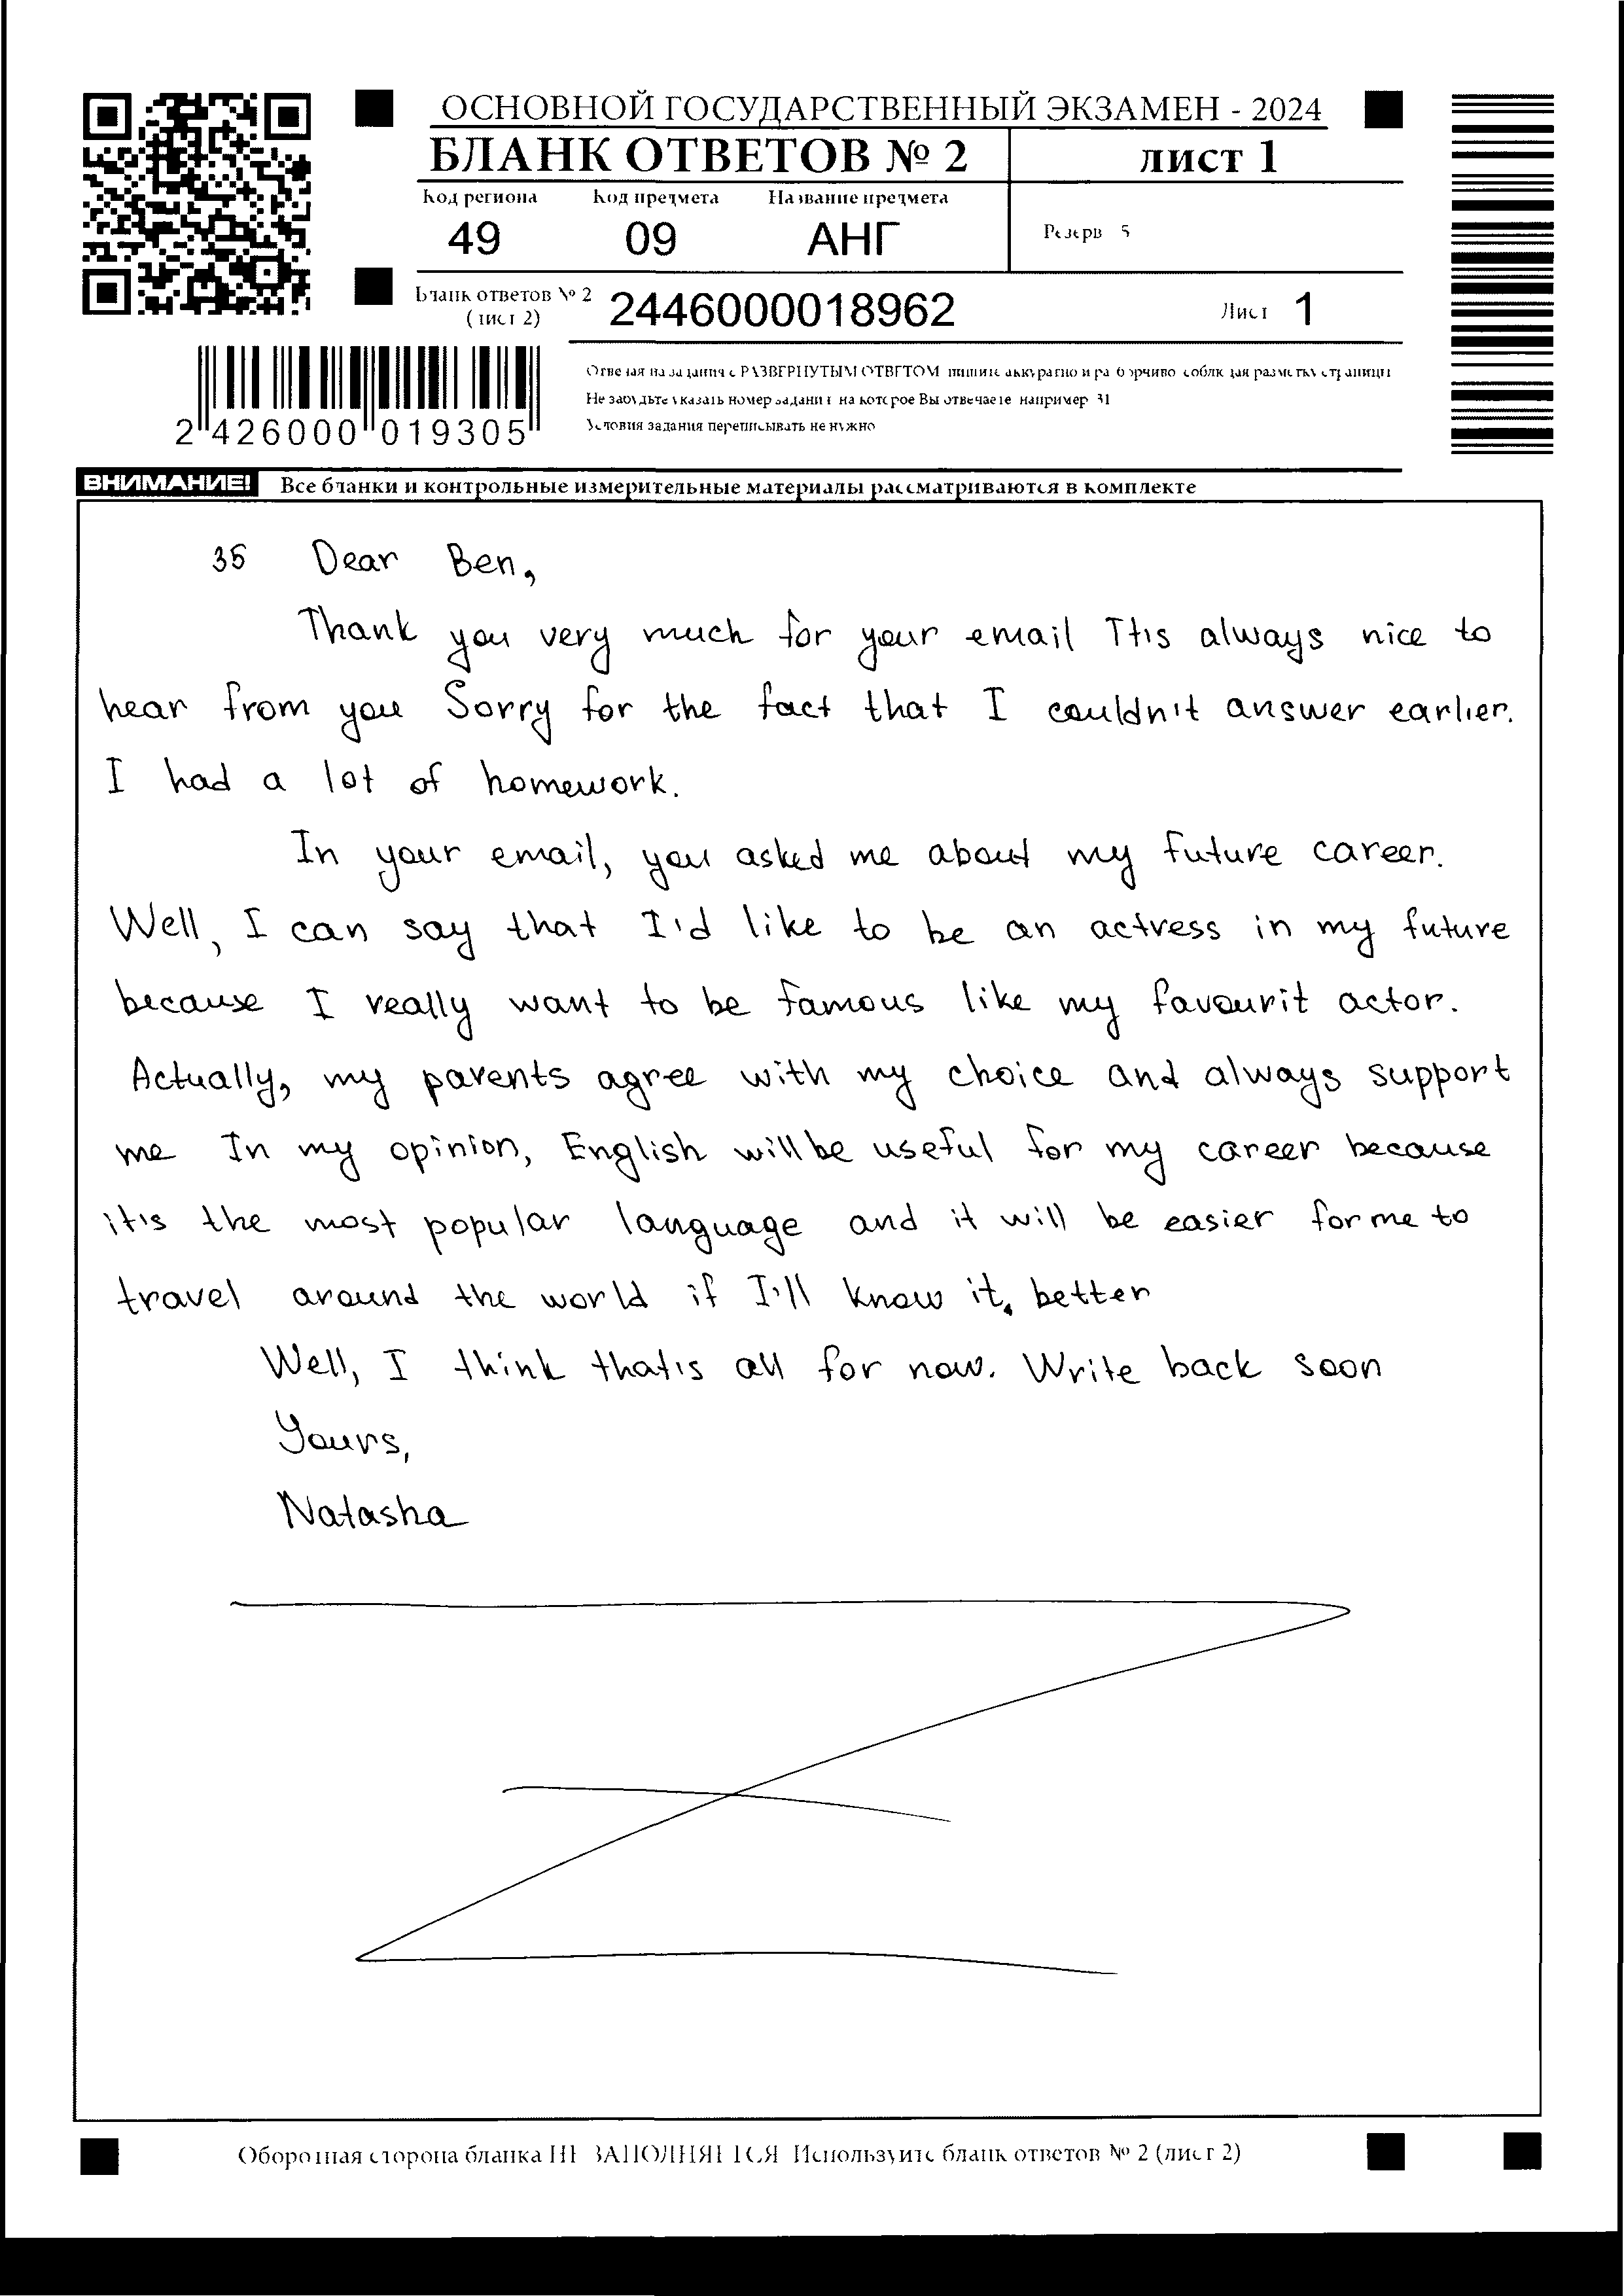 ОСНОВНОЙ ГОСУДАРСТВЕННЫЙ ЭКЗАМЕН - 2024
БЛАНК ОТВЕТОВ № 2
лист 1
Код региона Код предмета Название предмета
49 09 АНГ
Резерв 5
Бланк ответов № 2 (лист 2) 2446000018962
Лист 1
Отвечая на задания с РАЗВЕРНУТЫМ ОТВЕТОМ пишите аккуратно и разборчиво соблюдая разметку страницы
Не забудьте указать номер задания на которое Вы отвечаете например 31
Условия задания переписывать не нужно
2 426000 019305
ВНИМАНИЕ! Все бланки и контрольные измерительные материалы рассматриваются в комплекте
35 Dear Ben,
Thank you very much for your email It's always nice to
hear from you Sorry for the fact that I couldn't answer earlier.
I had a lot of homework.
In your email, you asked me about my future career.
Well, I can say that I'd like to be an actress in my future
because I really want to be famous like my favourit actor.
Actually, my parents agree with my choice and always support
me In my opinion, English will be useful for my career because
it's the most popular language and it will be easier for me to
travel around the world if I'll know it, better
Well, I think that's all for now. Write back soon
Yours,
Natasha
Оборотная сторона бланка НЕ ЗАПОЛНЯЕТСЯ Используйте бланк ответов № 2 (лист 2)